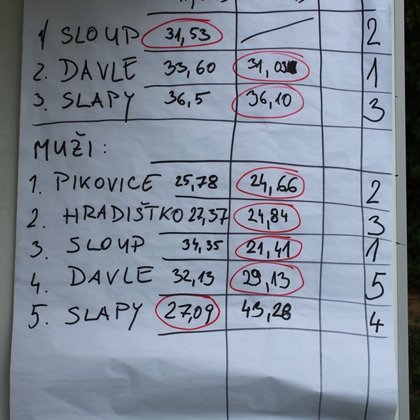 1 SLOUP 31,53 2
2. DAVLE 33,60 31,03 1
3. SLAPY 36,5 36,10 3
MUŽI:
1. PIKOVICE 25,78 24,66 2
2. HRADIŠTKO 27,37 24,84 3
3. SLOUP 34,35 21,41 1
4. DAVLE 32,13 29,13 5
5. SLAPY 27,09 43,28 4